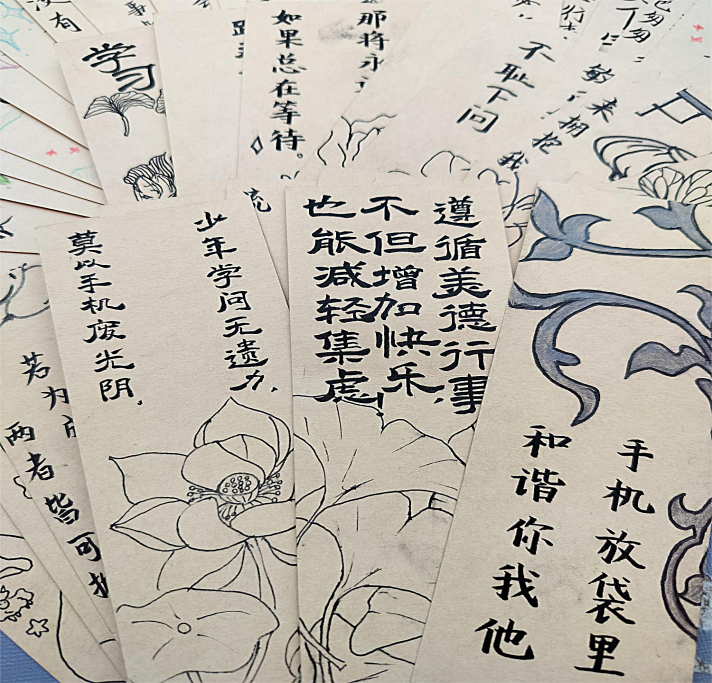 没有
事
学习
如果总在等待。
那将永
不耻下问
我
拥抱
来
少年学问无遗力，
莫以手机废光阴。
遵循美德行事，
不但增加快乐，
也能减轻集虑！
手机放袋里
和谐你我他
若为
两者皆可